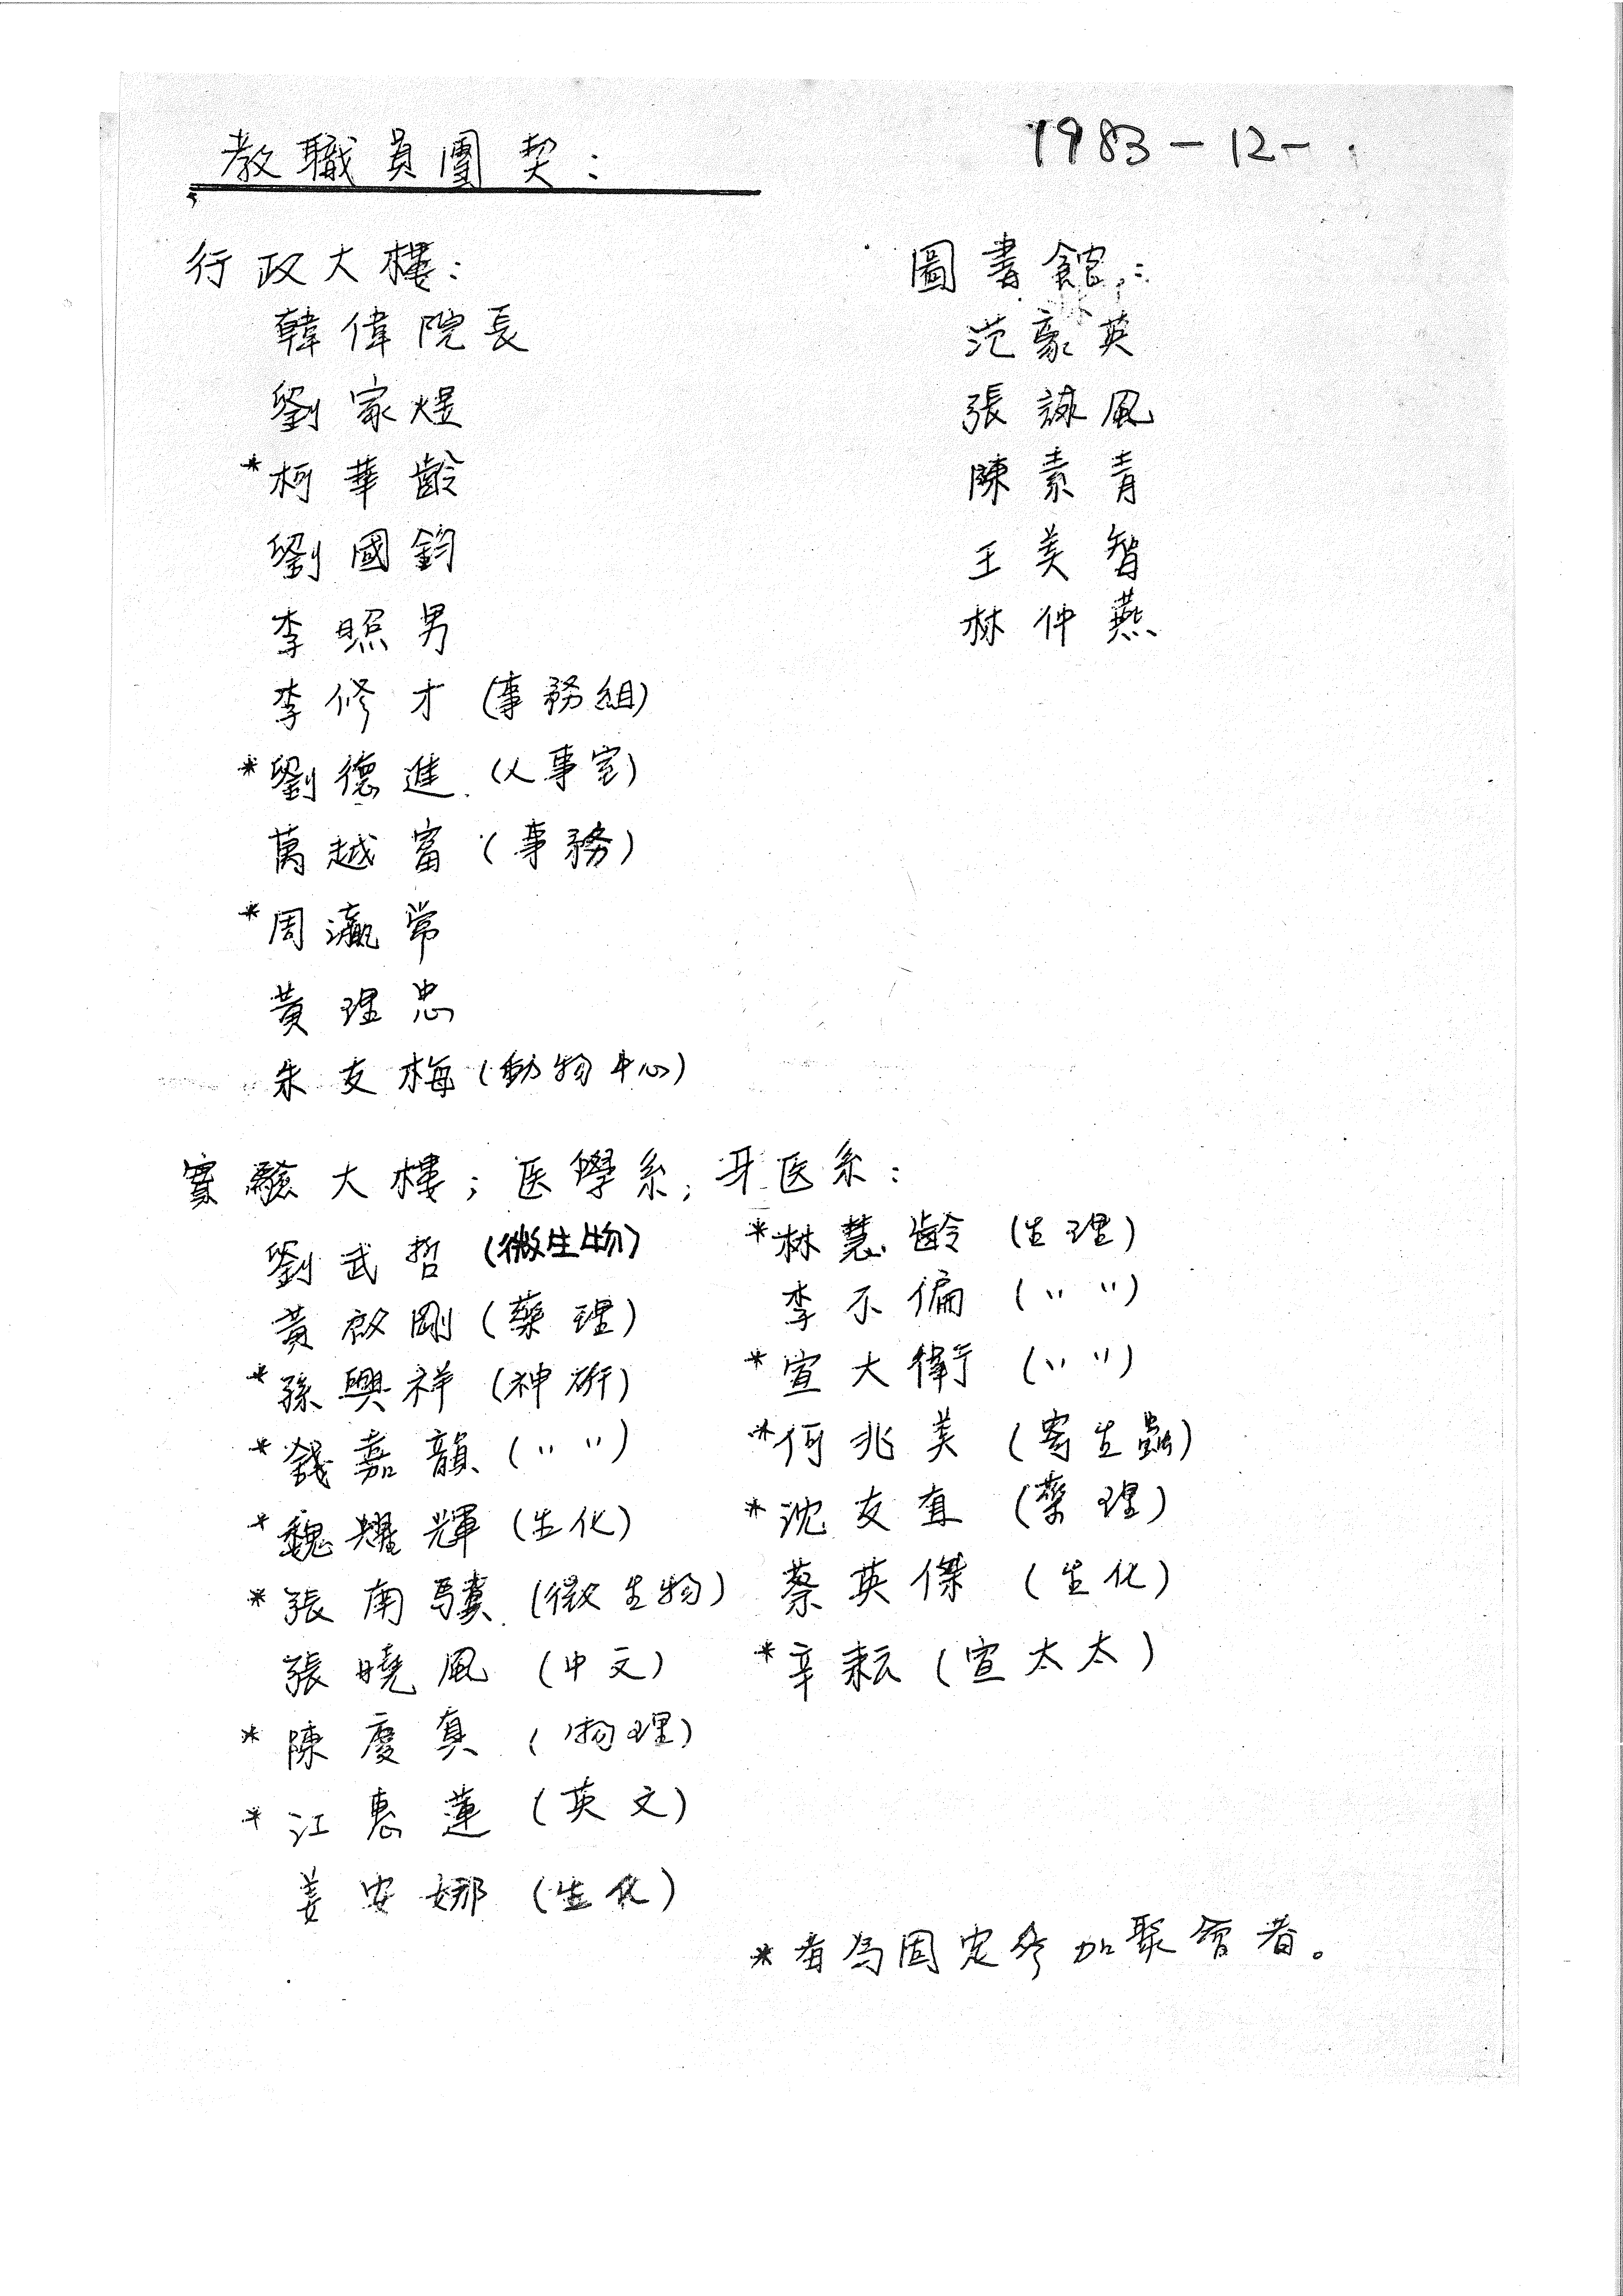 教職員團契：
1983-12-
行政大樓：
韓偉院長
劉家煜
*柯華齡
劉國鈞
李照男
李修才（事務組）
*劉德進（人事室）
萬越富（事務）
*周瀛常
黃理忠
朱友梅（動物中心）
圖書館：
范豪英
張詠風
陳素青
王美智
林仲燕
實驗大樓；医學系；牙医系：
劉武哲（微生物）
黃啟剛（藥理）
*孫興祥（神研）
*錢嘉韻（〃 〃）
*魏耀輝（生化）
*張南驥（微生物）
張曉風（中文）
*陳慶真（物理）
*江惠蓮（英文）
姜安娜（生化）
*林慧齡（生理）
李不偏（〃 〃）
*宣大衛（〃 〃）
*何兆美（寄生蟲）
*沈友直（藥理）
蔡英傑（生化）
*辛耘（宣太太）
*者為固定參加聚會者。